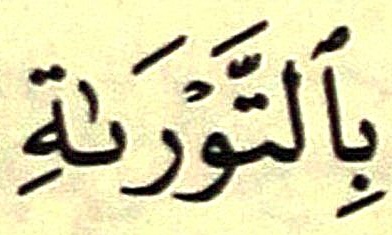 بِٱلتَّوْرَىٰةِ